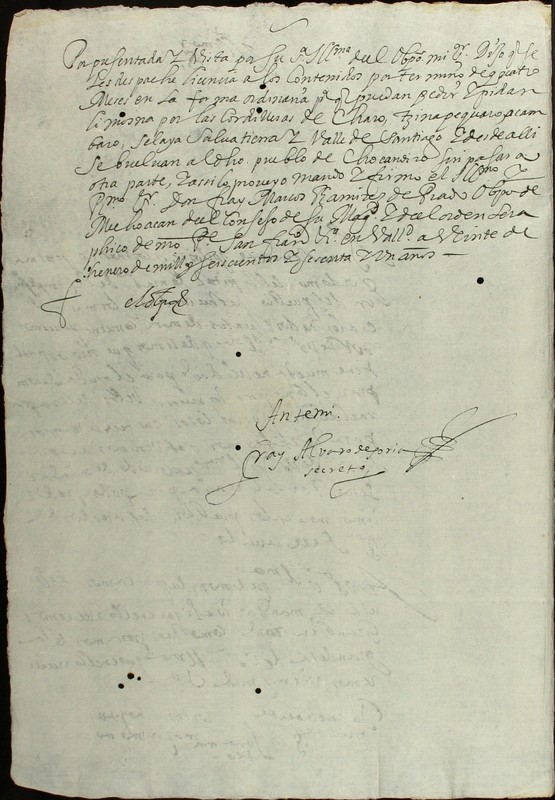 Por presentada y Vista por su Sª Illma del Obpo mi Sr. Dijo q se
les despache licencia a los Contenidos por termino de quatro
Meses en la forma ordinaria pª q puedan pedir y pidan
limosna por las Cordilleras de Charo, Tzinapequaro, acam
baro, Selaya Salvatierra y Valle de Santiago y desde alli
se buelvan al dho. pueblo de Chocandiro sin pasar a
otra parte, y assi lo proveyo mando y firmo el Illmo y
Rmo Sr. Don fray Marcos Ramires de Prado Obpo de
Mechoacan del Consejo de su Magd y del orden sera
phico de nro Pe San Franco &ª en Valld a Veinte de
henero de mill y seiscientos y sesenta y Un años —
el obpo
Ante mi.
fray Alvaro de
secreto